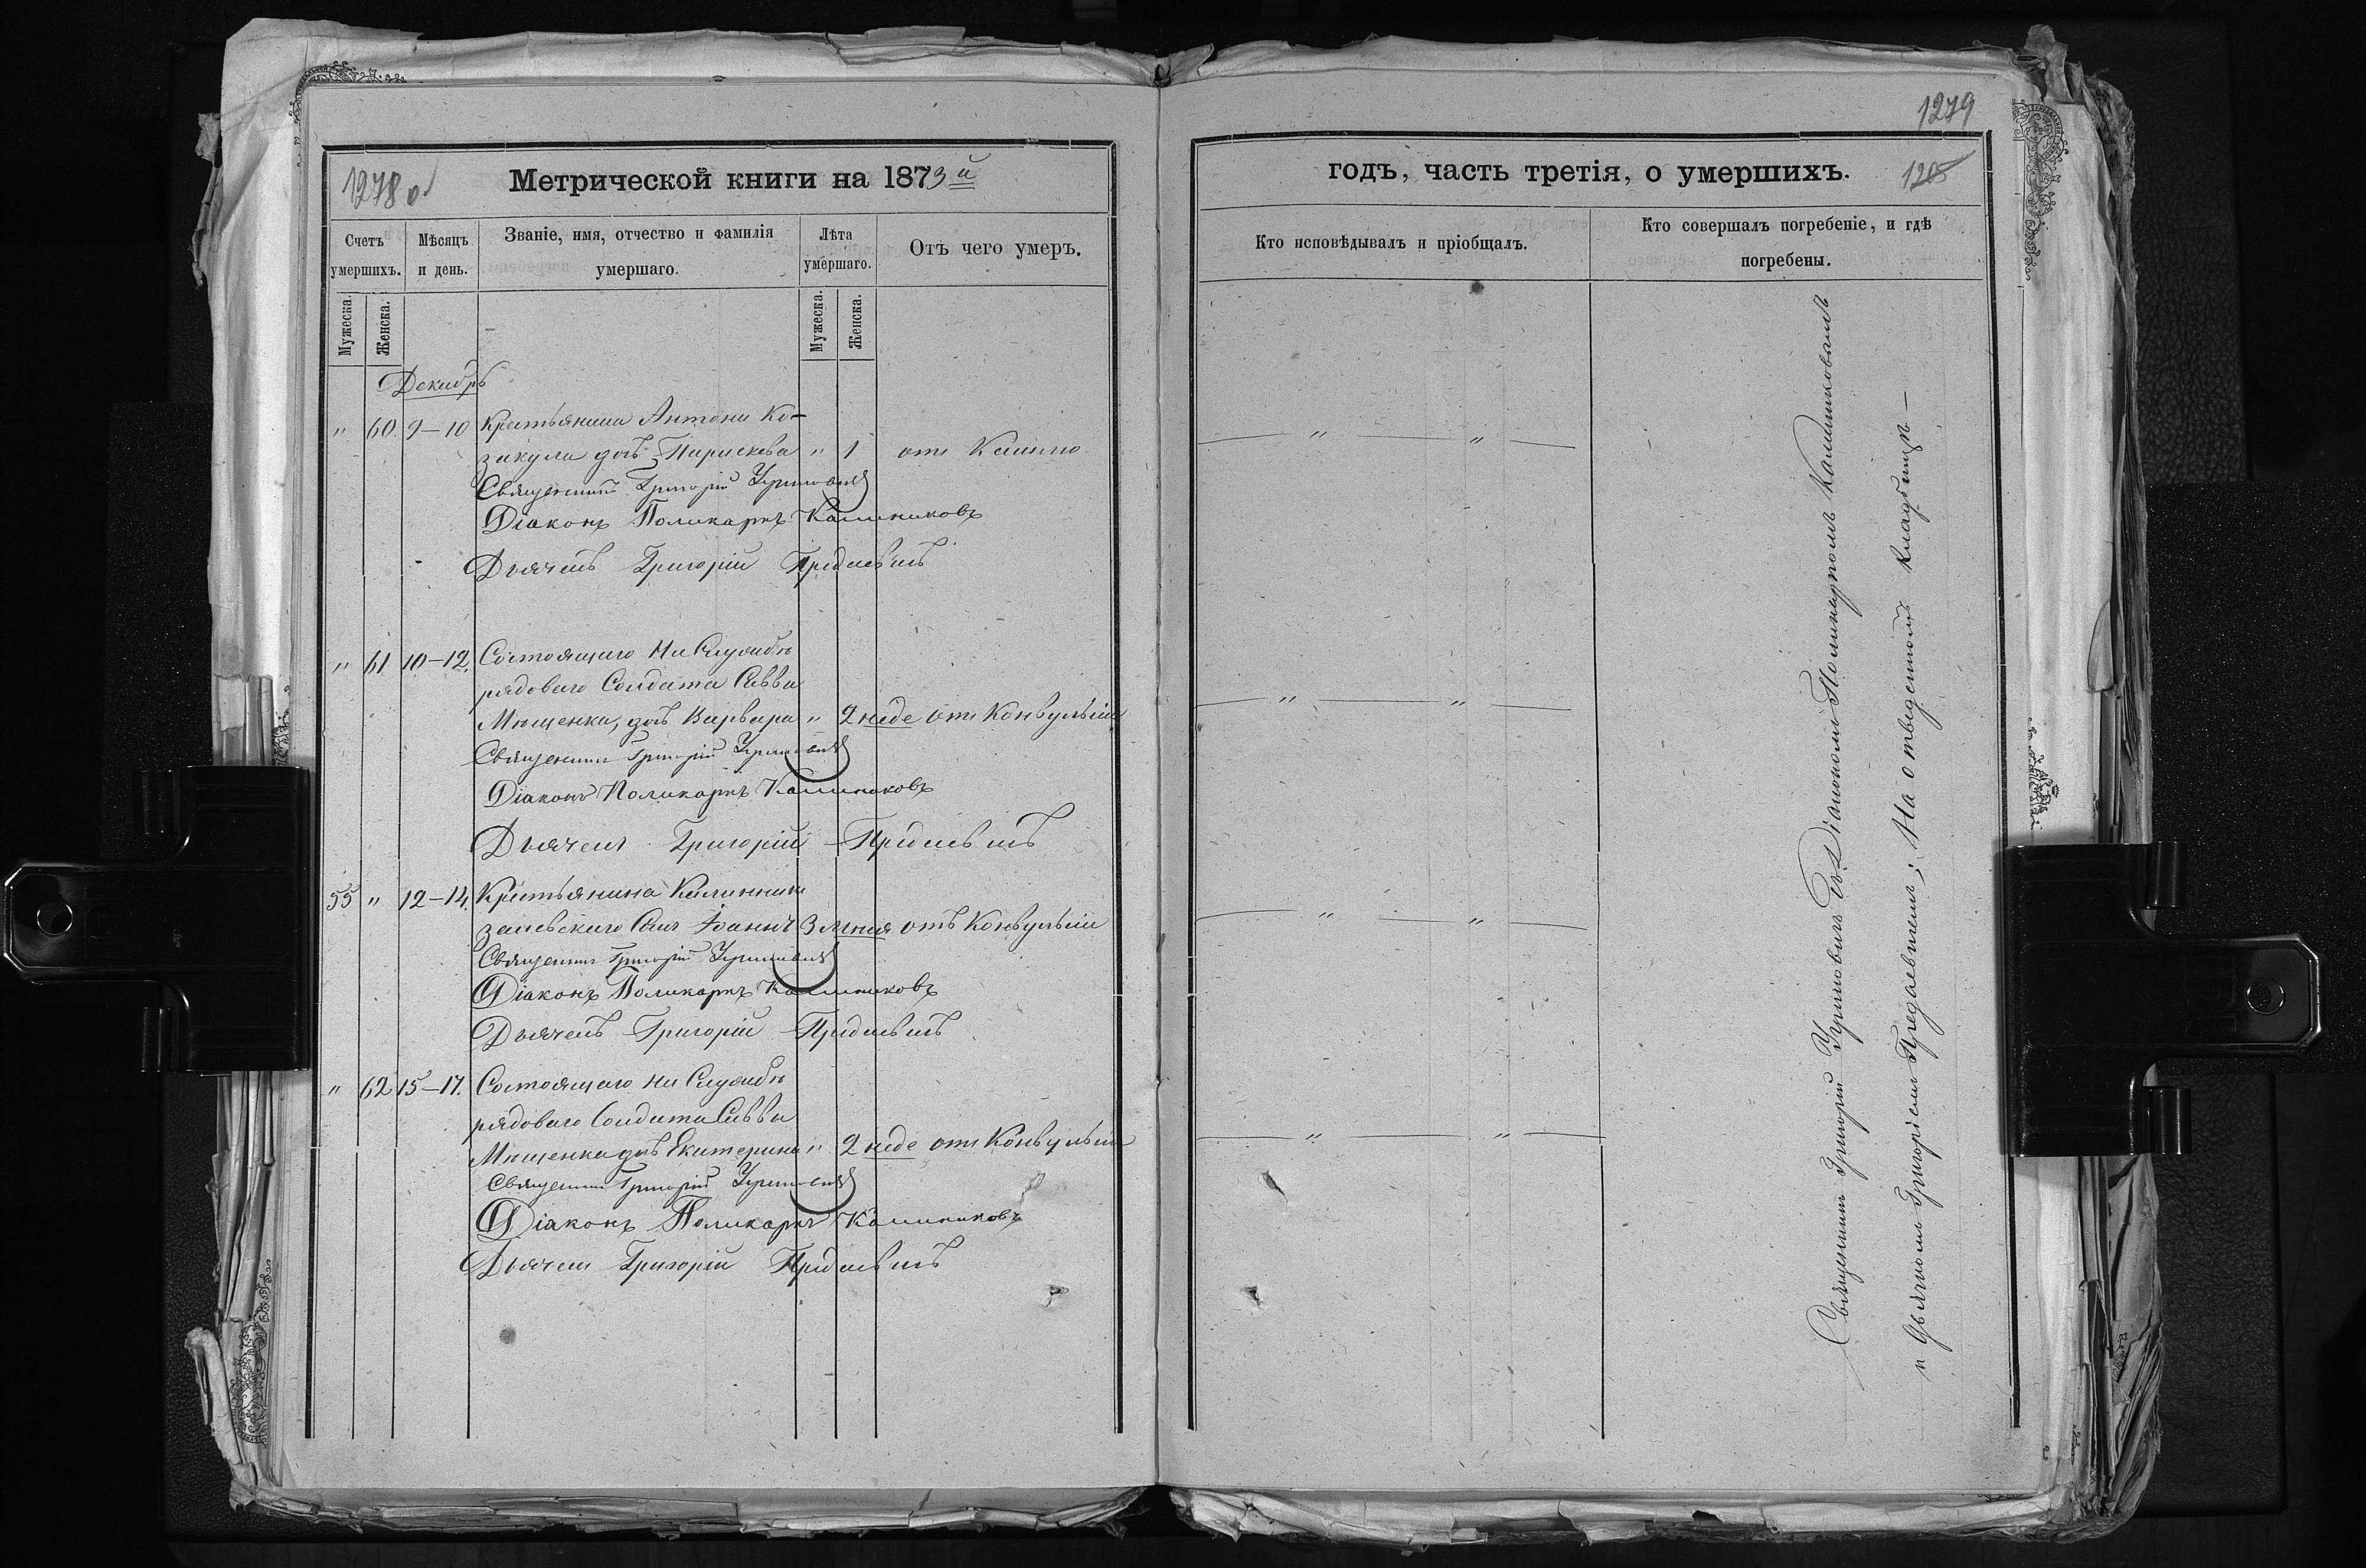 1278 об
Метрической книги на 1873й
Счетъ умершихъ.
Мѣсяцъ и день.
Званіе, имя, отчество и фамилія умершаго.
Лѣта умершаго.
Отъ чего умеръ.
Мужеска.
Женска.
Мужеска.
Женска.
Декабрь
" 60. 9–10 Крестьянина Антона Ко-
закула дочь Параскева " 1 отъ Кашлю
Священникъ Григорій
Діаконъ Поликарпъ Калиниковъ
Дьячекъ Григорій
" 61 10–12. Состоящаго На Службѣ
рядоваго Солдата Саввы
Мищенка, дочь Варвара " 2 неде отъ Конвульсіи
Священникъ Григорій
Діаконъ Поликарпъ Калиниковъ
Дьячекъ Григорій
55 " 12–14. Крестьянина Калинника
Сынъ Іоаннъ 3 месяця отъ Конвульсіи
Священникъ Григорій
Діаконъ Поликарпъ Калиниковъ
Дьячекъ Григорій
" 62 15–17. Состоящаго На Службѣ
рядоваго Солдата Саввы
Мищенка дочь Екатерина " 2 неде отъ Конвульсіи
Священникъ Григорій
Діаконъ Поликарпъ Калиниковъ
Дьячекъ Григорій
1279
годъ, часть третія, о умершихъ.
1205
Кто исповѣдывалъ и пріобщалъ.
Кто совершалъ погребеніе, и гдѣ погребены.
— " — " —
— " — " —
— " — " —
— " — " —
Священникъ Григорій съ Діакономъ Поликарпомъ Калиниковымъ
и дьячкомъ Григоріемъ; На отведенномъ кладбищѣ —